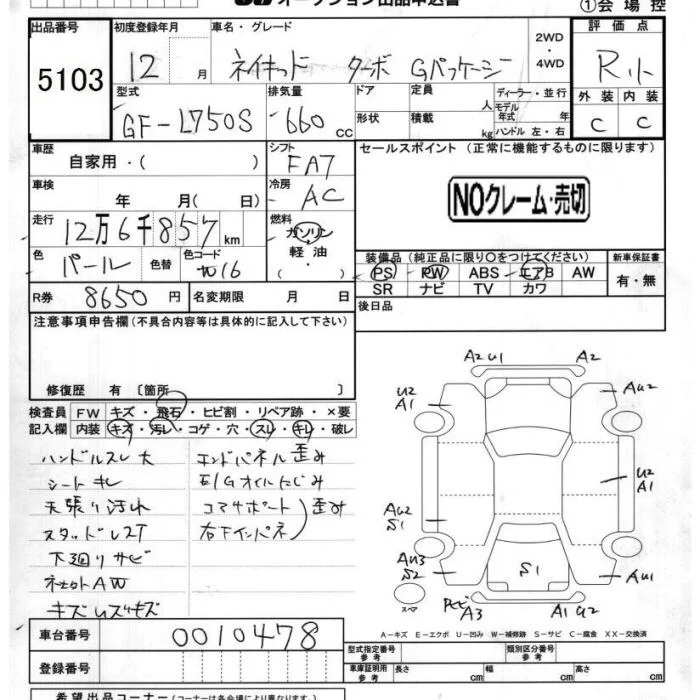 オークション出品申込書
①会場控
出品番号 初度登録年月 車名・グレード 2WD・4WD 評価点
5103 12月 ネイキッド ターボ Gパッケージ R小
型式 排気量 ドア 定員 人 ディーラー・並行 外装 内装
GF-L750S 660cc 形状 積載 kg モデル年式 年 ハンドル 左・右 C C
車歴 シフト セールスポイント (正常に機能するものに限ります)
自家用・( ) FA7
車検 冷房 NOクレーム・売切
年 月( 日) AC
走行 燃料
12万6千857km ガソリン
色 色替 色コード 軽油 装備品(純正品に限り〇をつけてください) 新車保証書
パール W16 ・( ) PS PW ABS エアB AW 有・無
SR ナビ TV カワ
R券 8650円 名変期限 月 日 後日品
注意事項申告欄(不具合内容等は具体的に記入して下さい)
修復歴 有〔箇所 〕
検査員 FW キズ・飛石・ヒビ割・リペア跡・×要
記入欄 内装 キズ・汚レ・コゲ・穴・スレ・キレ・破レ
ハンドルスレ大 エンドパネル歪み
シートキレ E/Gオイルにじみ
天張り汚れ コアサポート 歪み
スタッドレスT 右下インパネ
下廻りサビ
ネセットAW
A2U1 A2
U2 A1 AU2
U2 A1
AU2 S1
AU3 S2 S1 AU1
スペア A3 A1U2
A-キズ E-エクボ U-凹み W-補修跡 S-サビ C-腐食 XX-交換済
車台番号 0010478
登録番号
型式指定番号 参考 類別区分番号 参考
車庫証明用 参考 長さ cm 幅 cm 高さ cm
希望出品コーナー(コーナーは各会場により異なります。)